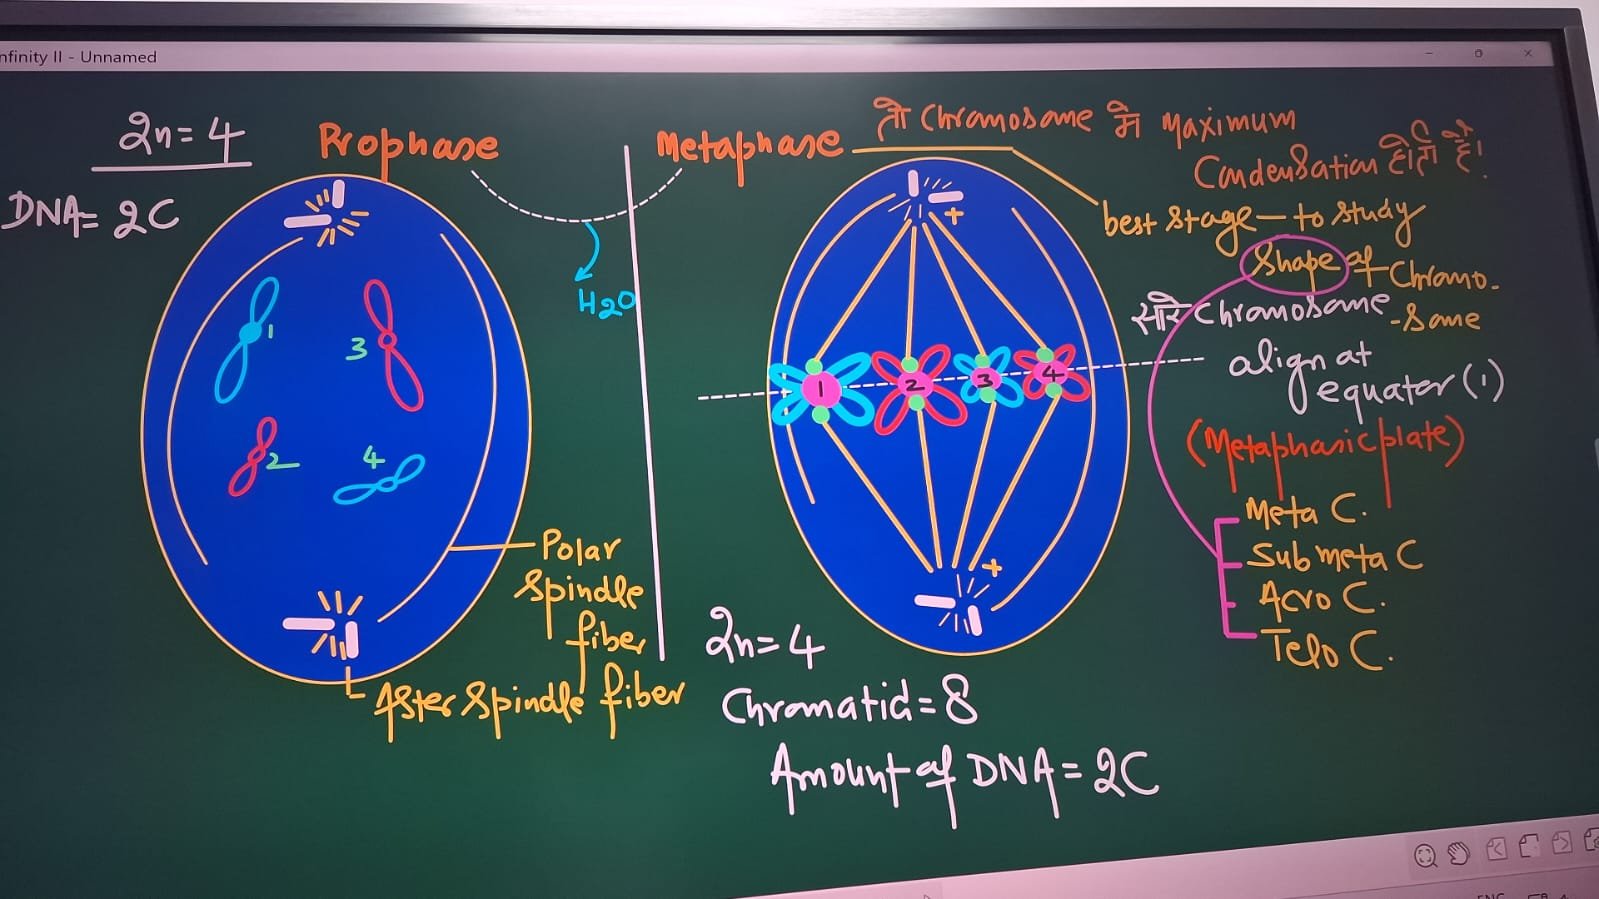 nfinity II - Unnamed
2n=4
DNA=2C
Prophase
1
3
2
4
Polar
Spindle
fiber
Aster Spindle fiber
H2O
Metaphase
Chromosome में Maximum
Condensation होती है।
best stage - to study
Shape of Chromo-
-Some
सारे Chromosome
align at
equator (1)
(Metaphasic plate)
Meta C.
Sub meta C
Acro C.
Telo C.
+
1 2 3 4
+
2n=4
Chromatid=8
Amount of DNA=2C